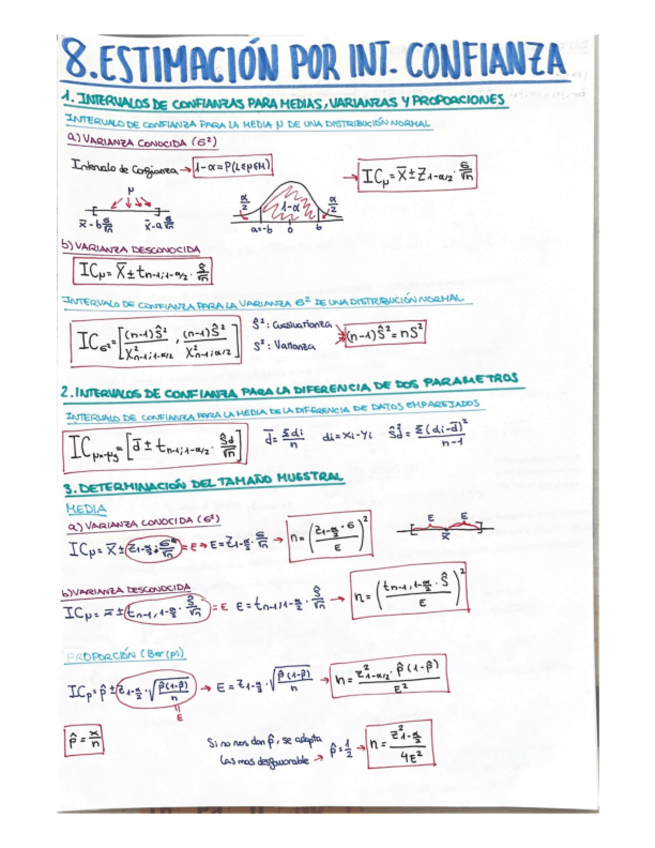 8. ESTIMACIÓN POR INT. CONFIANZA
1. INTERVALOS DE CONFIANZAS PARA MEDIAS, VARIANZAS Y PROPORCIONES
INTERVALO DE CONFIANZA PARA LA MEDIA μ DE UNA DISTRIBUCIÓN NORMAL
a) VARIANZA CONOCIDA (σ²)
Intervalo de Confianza → 1-α = P(L≤μ≤M) → IC_μ = x̄ ± Z_{1-α/2} · σ/√n
μ
x̄ - b σ/√n   x̄ - a σ/√n   α/2   1-α   α/2
a=-b   0   b
b) VARIANZA DESCONOCIDA
IC_μ = x̄ ± t_{n-1; 1-α/2} · Ŝ/√n
INTERVALO DE CONFIANZA PARA LA VARIANZA σ² DE UNA DISTRIBUCIÓN NORMAL
IC_σ² = [(n-1)Ŝ² / χ²_{n-1; 1-α/2} , (n-1)Ŝ² / χ²_{n-1; α/2}]   Ŝ²: Cuasivarianza
S²: Varianza   (n-1)Ŝ² = nS²
2. INTERVALOS DE CONFIANZA PARA LA DIFERENCIA DE DOS PARAMETROS
INTERVALO DE CONFIANZA PARA LA MEDIA DE LA DIFERENCIA DE DATOS EMPAREJADOS
IC_{μx-μy} = [d̄ ± t_{n-1; 1-α/2} · Ŝd/√n]   d̄ = Σdi/n   di = xi - yi   Ŝ²d = Σ(di - d̄)²/n-1
3. DETERMINACIÓN DEL TAMAÑO MUESTRAL
MEDIA
a) VARIANZA CONOCIDA (σ²)
IC_μ = x̄ ± Z_{1-α/2} · σ/√n = E → E = Z_{1-α/2} · σ/√n → n = (Z_{1-α/2} · σ / E)²   E   E   x̄
b) VARIANZA DESCONOCIDA
IC_μ = x̄ ± t_{n-1, 1-α/2} · Ŝ/√n = E   E = t_{n-1; 1-α/2} · Ŝ/√n → n = (t_{n-1, 1-α/2} · Ŝ / E)²
PROPORCIÓN (Ber(p))
IC_p = p̂ ± Z_{1-α/2} · √(p̂(1-p̂)/n) → E = Z_{1-α/2} · √(p̂(1-p̂)/n) → n = Z²_{1-α/2} · p̂(1-p̂) / E²
E
p̂ = x/n
Si no nos dan p̂, se adopta
las mas desfavorable → p̂ = 1/2 → n = Z²_{1-α/2} / 4E²